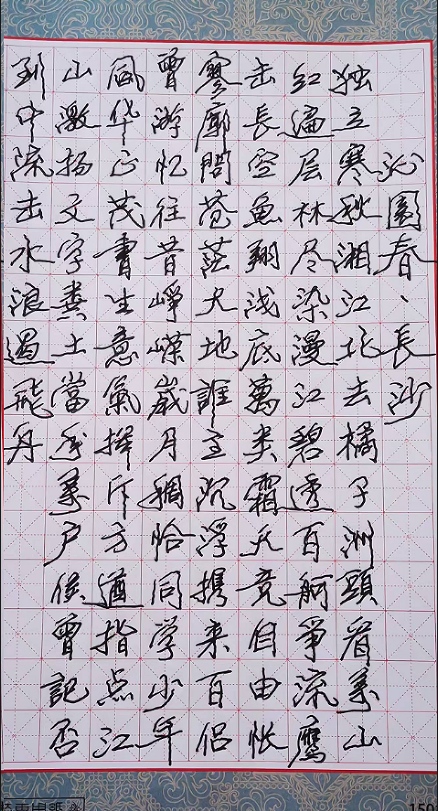 沁園春、長沙
独立寒秋湘江北去橘子洲頭看萬山
红遍层林尽染漫江碧透百舸爭流鷹
击長空魚翔浅底萬类霜天竞自由怅
寥廓問苍茫大地誰主沉浮携来百侣
曾游忆往昔峥嵘歲月稠恰同学少年
風华正茂書生意氣挥斥方遒指点江
山激扬文字粪土當年萬户侯曾記否
到中流击水浪遏飛舟